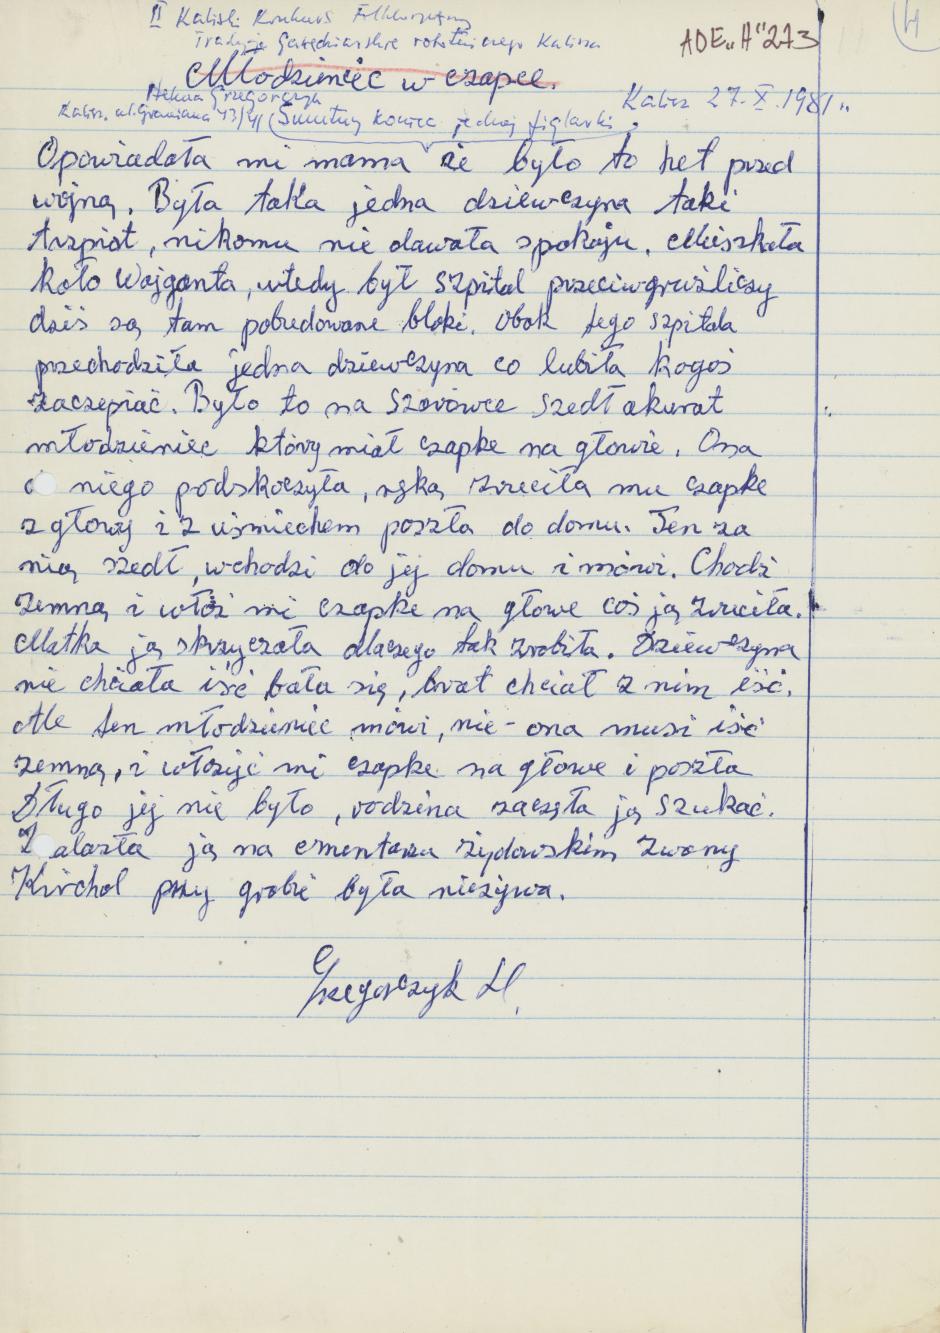 II Kaliski Konkurs Folklorystyczny
Tradycje Gawędziarskie robotniczego Kalisza
ADE „H" 273
Młodzieniec w czapce.
Helena Grzegorczyk
Kalisz 27.X.1981
Kalisz, ul. 13/ (Smutny koniec jednej figlarki)
Opowiadała mi mama że było to het przed
wojną. Była taka jedna dziewczyna taki
trzpiot, nikomu nie dawała spokoju. Mieszkała
koło Wajganta, wtedy był szpital przeciwgruźliczy
dziś są tam pobudowane bloki. Obok tego szpitala
przechodziła jedna dziewczyna co lubiła kogoś
zaczepiać. Było to na szarówce szedł akurat
młodzieniec który miał czapke na głowie. Ona
do niego podskoczyła, ręką zrzuciła mu czapke
z głowy i z uśmiechem poszła do domu. Ten za
nią szedł, wchodzi do jej domu i mówi. Chodź
zemną i włóż mi czapke na głowe coś ją zrzuciła.
Matka ją skrzyczała dlaczego tak zrobiła. Dziewczyna
nie chciała iść bała się, brat chciał z nim iść.
Ale ten młodzieniec mówi, nie - ona musi iść
zemną, i włożyć mi czapke na głowe i poszła
Długo jej nie było, rodzina zaczęła ją szukać.
Znalazła ją na cmentarzu żydowskim zwany
Kirchol przy grobie była nieżywa.
Grzegorczyk H.